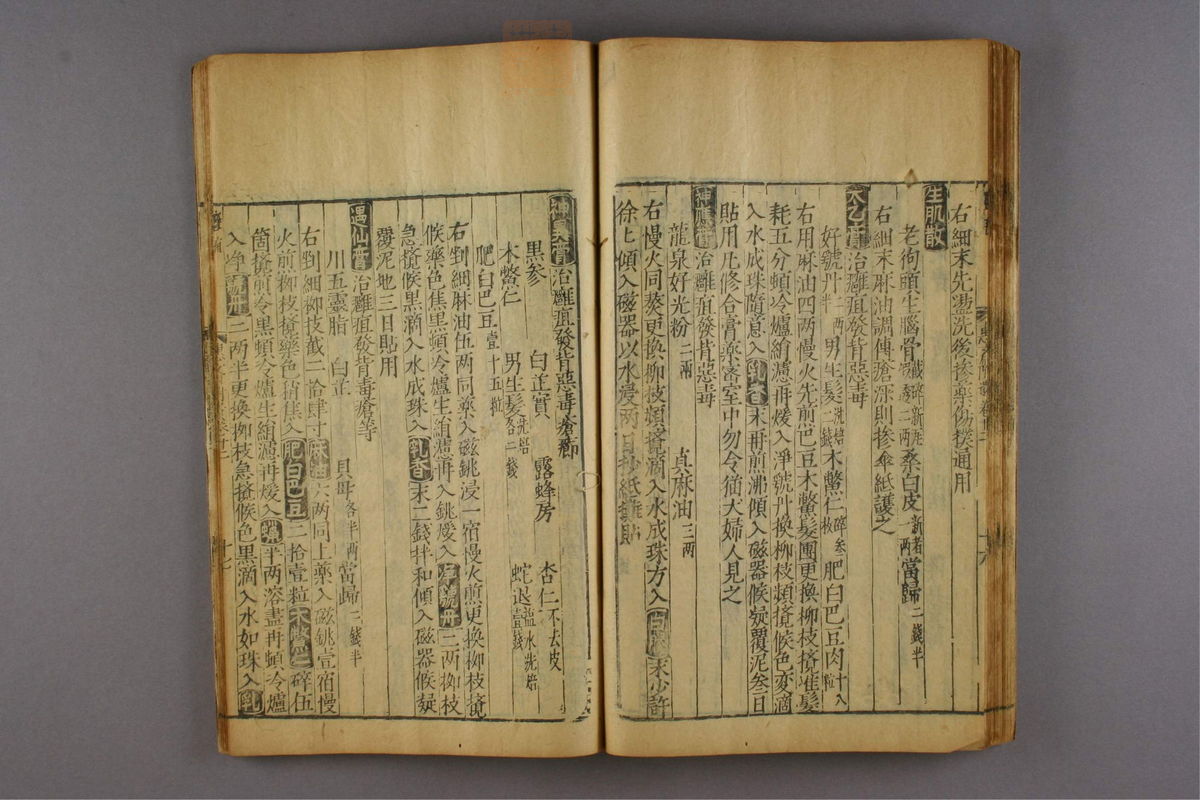 右細末先盪洗後摻藥傷撲通用
生肌散
老狗頭生腦骨 截碎新瓦 二両 桑白皮 新者一両 當歸 二錢半
右細末麻油調傅瘡深則摻傘紙護之
太乙膏 治癰疽發背惡毒
好號丹 二両半 男生髮 洗焙二錢 木鱉仁 碎叁枚 肥白巴豆肉 十八粒
右用麻油四両慢火先煎巴豆木鱉髮團更換柳枝攪堆髮
耗五分頓冷爐絹濾再煖入淨號丹換柳枝頻攪候色変滴
入水成珠隨意入乳香末再煎沸傾入磁器候凝覆泥叁日
貼用凡修合膏藥密室中勿令猫犬婦人見之
神應膏 治癰疽發背惡毒
龍泉好光粉 二両 真麻油 三両
右慢火同熬更換柳枝頻攪滴入水成珠方入白膠末少許
徐徐傾入磁器以水浸両日抄紙攤貼
神異膏 治癰疽發背惡毒瘡癤
黒参 白芷實 露蜂房 杏仁 不去皮
木鱉仁 男生髮 洗焙各二錢 蛇退 盐水洗焙壹錢
肥白巴豆 壹十五粒
右剉細麻油伍両同藥入磁銚浸一宿慢火煎更换柳枝攪
候藥色焦黒頓冷爐生絹濾再入銚煖入淨號丹二両柳枝
急攪候黒滴入水成珠入乳香末二錢拌和傾入磁器候凝
覆泥地三日貼用
遇仙膏 治癰疽發背毒瘡等
川五靈脂 白芷 貝母 各半両 當歸 二錢半
右剉細柳枝截二拾肆寸麻油六両同上藥入磁銚壹宿慢
火煎柳枝攪藥色稍焦入肥白巴豆二拾壹粒木鱉仁碎伍
箇攪煎令黒頓冷爐生絹濾再煖入蠟半両溶盡再頓冷爐
入净號丹二両半更換柳枝急攪候色黒滴入水如珠入乳